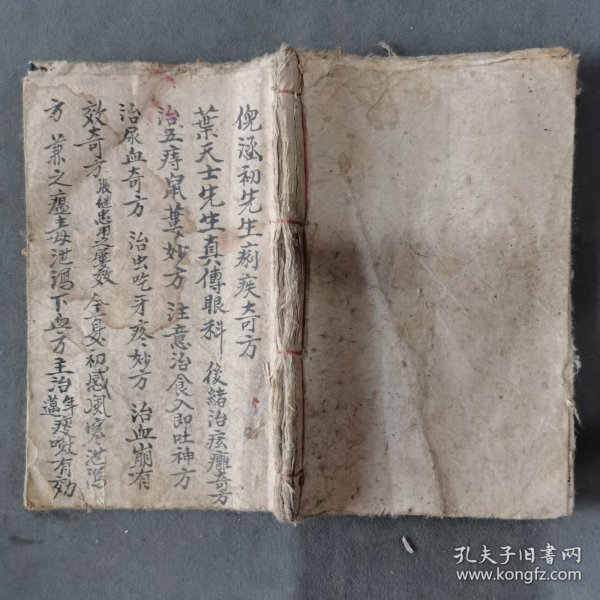 倪涵初先生痢疾奇方
葉天士先生真傳眼科 後緒治痃癰奇方
治五痔鼠蔞妙方 注意治食入即吐神方
治尿血奇方 治虫吃牙疼妙方 治血崩有
效奇方 張継忠用之屡效 全夏初感風寒泄瀉
方 兼之瘟毒泄瀉下血方主治年邁痰嗽有効
孔夫子旧书网
www.kongfz.com